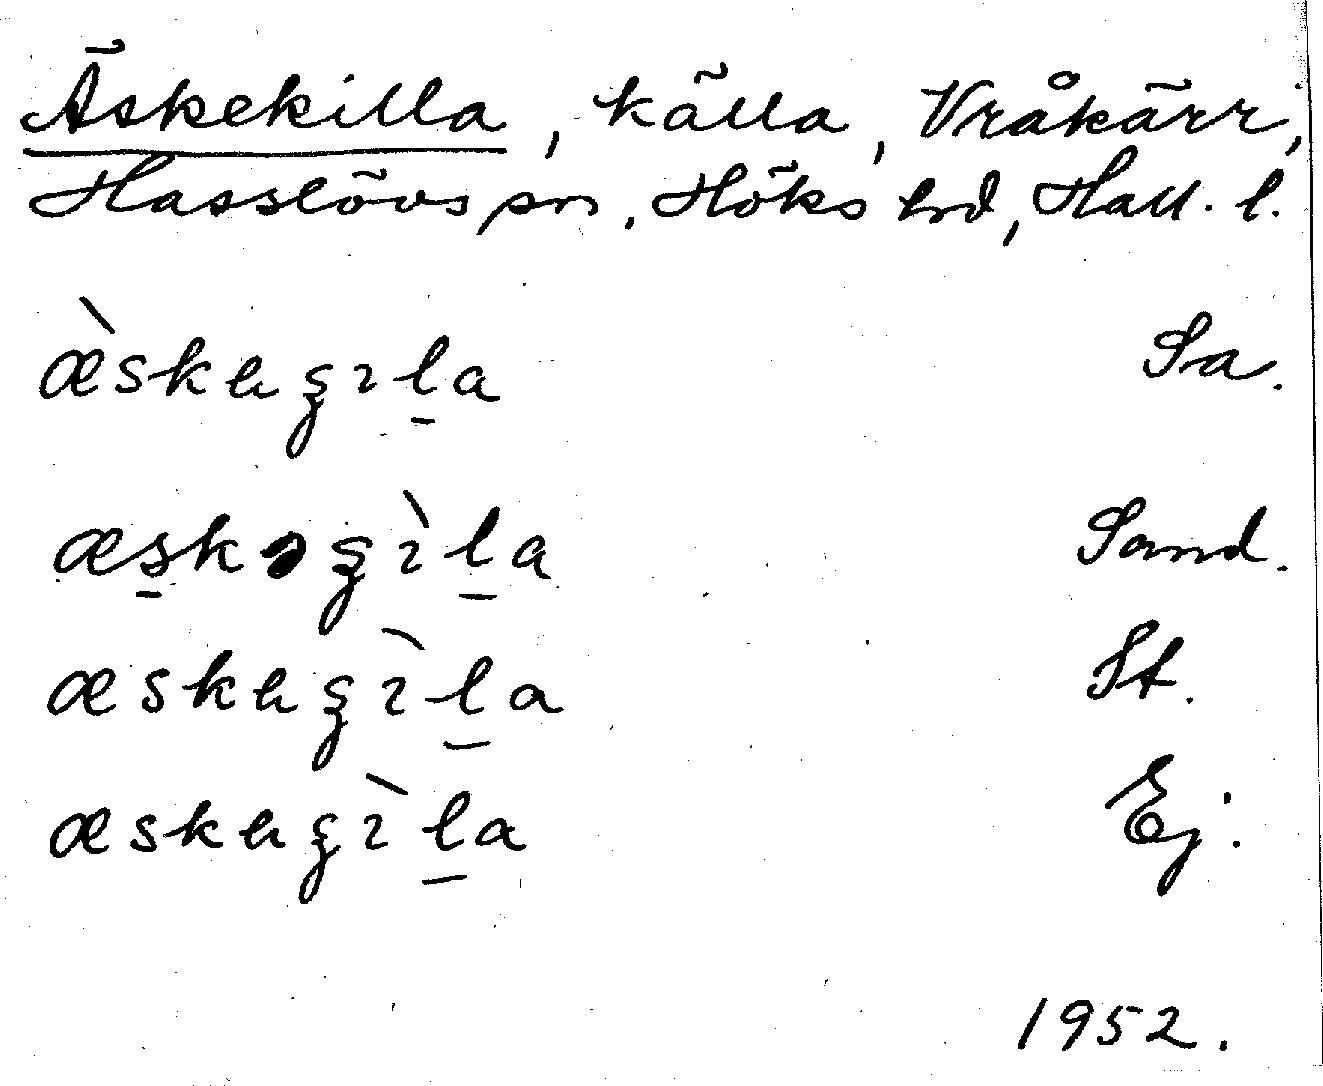 Äskekilla, källa, Vråkärr,
Hasslövs sn, Höks hrd, Hall. l.
æ̀skaʒıl̠a Sa.
æs̠kəʒı̀l̠a Sand.
æskaʒı̀l̠a St.
æskaʒı̀l̠a Ej.
1952.